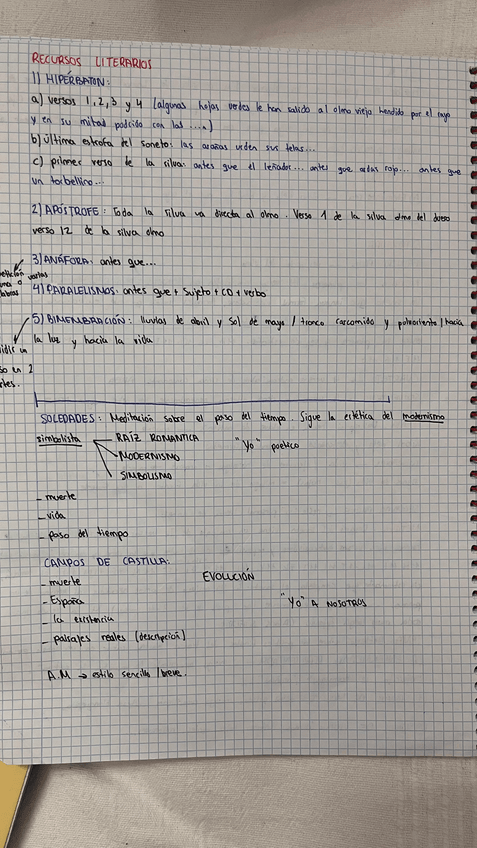 RECURSOS LITERARIOS
1) HIPÉRBATON:
a) versos 1, 2, 3 y 4 (algunas hojas verdes le han salido al olmo viejo hendido por el rayo
y en su mitad podrido con las ....)
b) última estrofa del soneto: las arañas urden sus telas...
c) primer verso de la silva: antes que el leñador... antes que ardas rojo... antes que
un torbellino...
2) APÓSTROFE: Toda la silva va directa al olmo. Verso 1 de la silva olmo del duero
verso 12 de la silva olmo
3) ANÁFORA: antes que...
varias
una o
labras
4) PARALELISMOS: antes que + sujeto + CD + verbo
5) BIMEMBRACIÓN: lluvias de abril y sol de mayo / tronco carcomido y polvoriento / hacia
la luz y hacia la vida
en 2
SOLEDADES: Meditación sobre el paso del tiempo. Sigue la estética del modernismo
simbolista
RAÍZ ROMANTICA
"Yo" poetico
MODERNISMO
SIMBOLISMO
- muerte
- vida
- paso del tiempo
CAMPOS DE CASTILLA:
EVOLUCIÓN
- muerte
- España
"YO" A NOSOTROS
- la existencia
- paisajes reales (descripción)
A.M → estilo sencillo / breve.